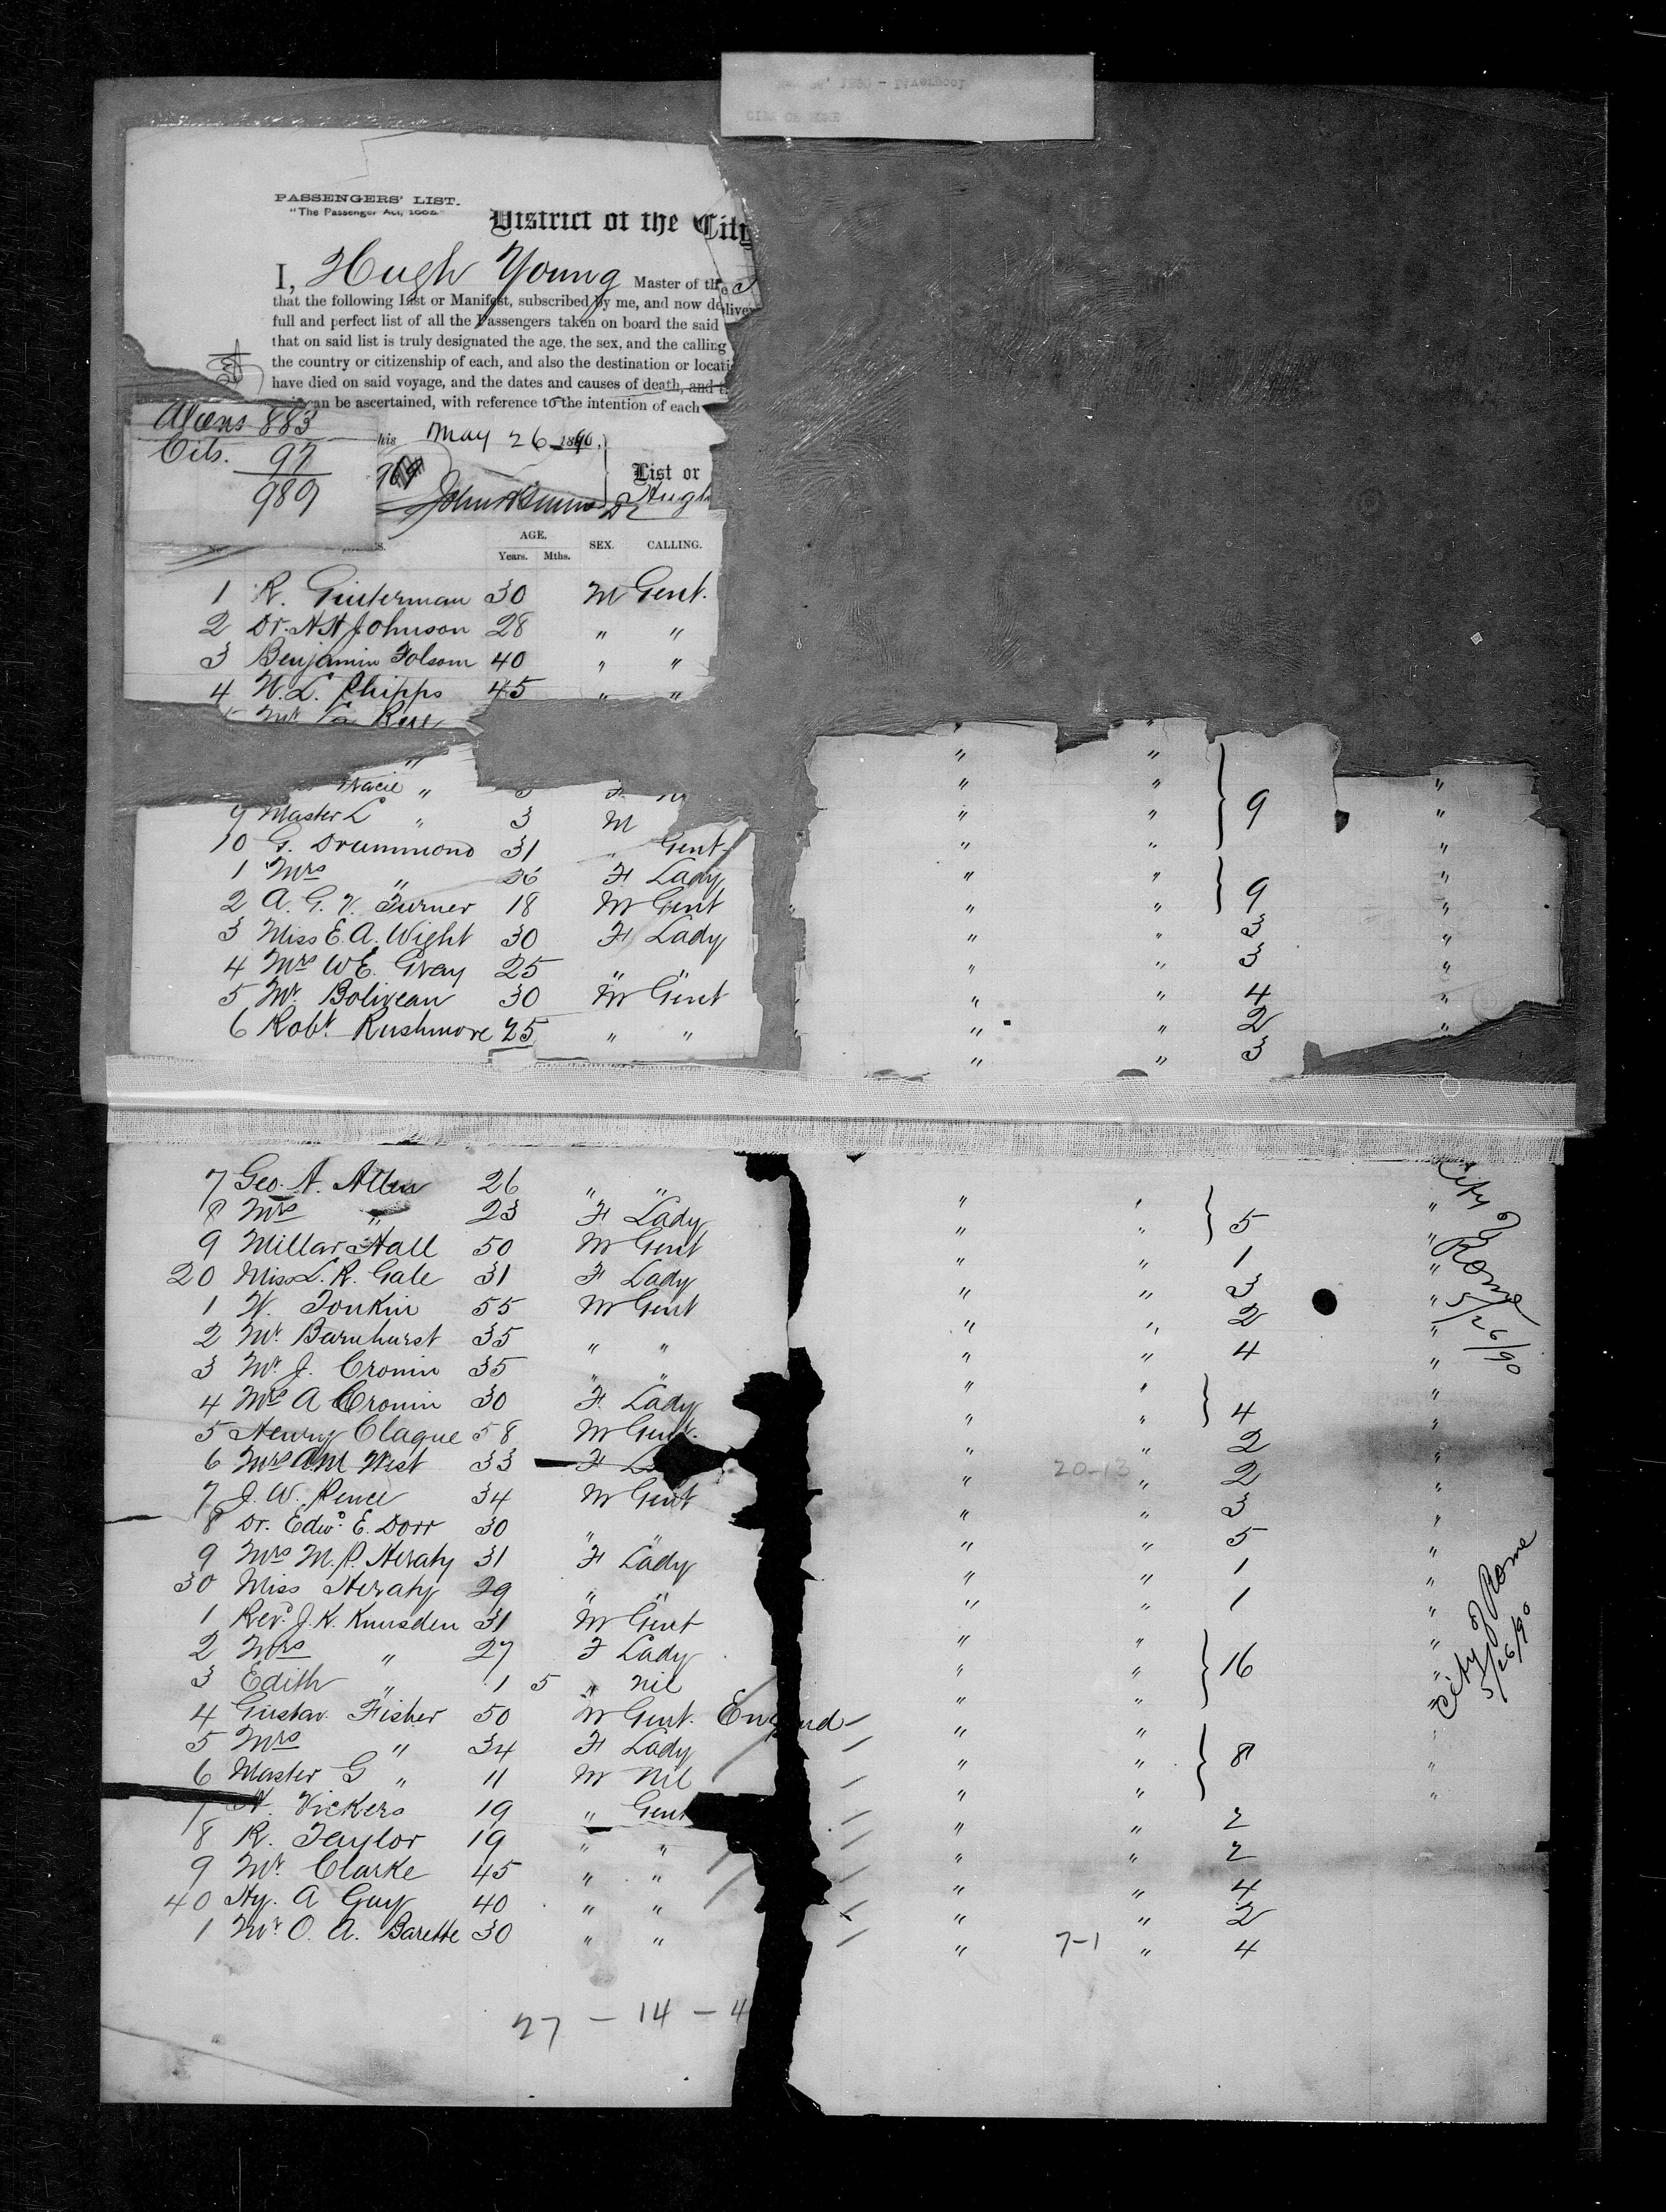 PASSENGERS' LIST.
"The Passenger Act, 1882."
District of the City
I, Hugh Young Master of the S
that the following List or Manifest, subscribed by me, and now deliver
full and perfect list of all the Passengers taken on board the said
that on said list is truly designated the age, the sex, and the calling
the country or citizenship of each, and also the destination or locati
have died on said voyage, and the dates and causes of death, and t
can be ascertained, with reference to the intention of each
Aliens 883
Cits. 97
989
his May 26 1890.
969
List or
Hugh
AGE.
Years. Mths. SEX. CALLING.
1 R. Guiterman 30 M Gent.
2 Dr. N H Johnson 28 " "
3 Benjamin Folsom 40 " "
4 W. L. Phipps 45 " "
Gracie "
9 Master L " 3 M " " 9 "
10 G. Drummond 31 " Gent " " "
1 Mrs " 26 F Lady " " "
2 A. G. V. Turner 18 M Gent " " 9 "
3 Miss E. A. Wight 30 F Lady " " 3 "
4 Mrs W E. Gray 25 " " " " 3 "
5 Mr. Boliveau 30 M Gent " " 4 "
6 Robt. Rushmore 25 " " " " 2 "
" " 3
7 Geo. N. Allen 26 " " " " "
8 Mrs " 23 F Lady " " 5 "
9 Millar Hall 50 M Gent " " 1 "
20 Miss L. R. Gale 31 F Lady " " 3 "
1 W. Tonkin 55 M Gent " " 2 "
2 Mr. Barnhurst 35 " " " " 4 "
3 Mr J. Cronin 35 " " " " "
4 Mrs A Cronin 30 F Lady " " 4 "
5 Henry Clague 58 M Gent. " " 2 "
6 Mrs A M West 33 F L " 20-13 " 2 "
7 J. W. Pence 34 M Gent " " 3 "
8 Dr. Edwd. E. Dorr 30 " " " " 5 "
9 Mrs M. P. Heraty 31 F Lady " " 1 "
30 Miss Heraty 29 " " " " 1 "
1 Revd. J. K. Knusden 31 M Gent " " "
2 Mrs " 27 F Lady " " 16 "
3 Edith " 1 5 " nil " " "
4 Gustav. Fisher 50 M Gent. England " " "
5 Mrs " 34 F Lady " " 8 "
6 Master G " 11 M Nil " " "
7 H. Vickers 19 " Gent " " 2
8 R. Taylor 19 " " " " 2
9 Mr. Clarke 45 " " " " 4
40 Hy. A Guy 40 " " " " 2
1 Mr. O. A. Barette 30 " " " 7-1 " 4
27 - 14 - 4
City of Rome 5/26/90
City of Rome
5/26/90